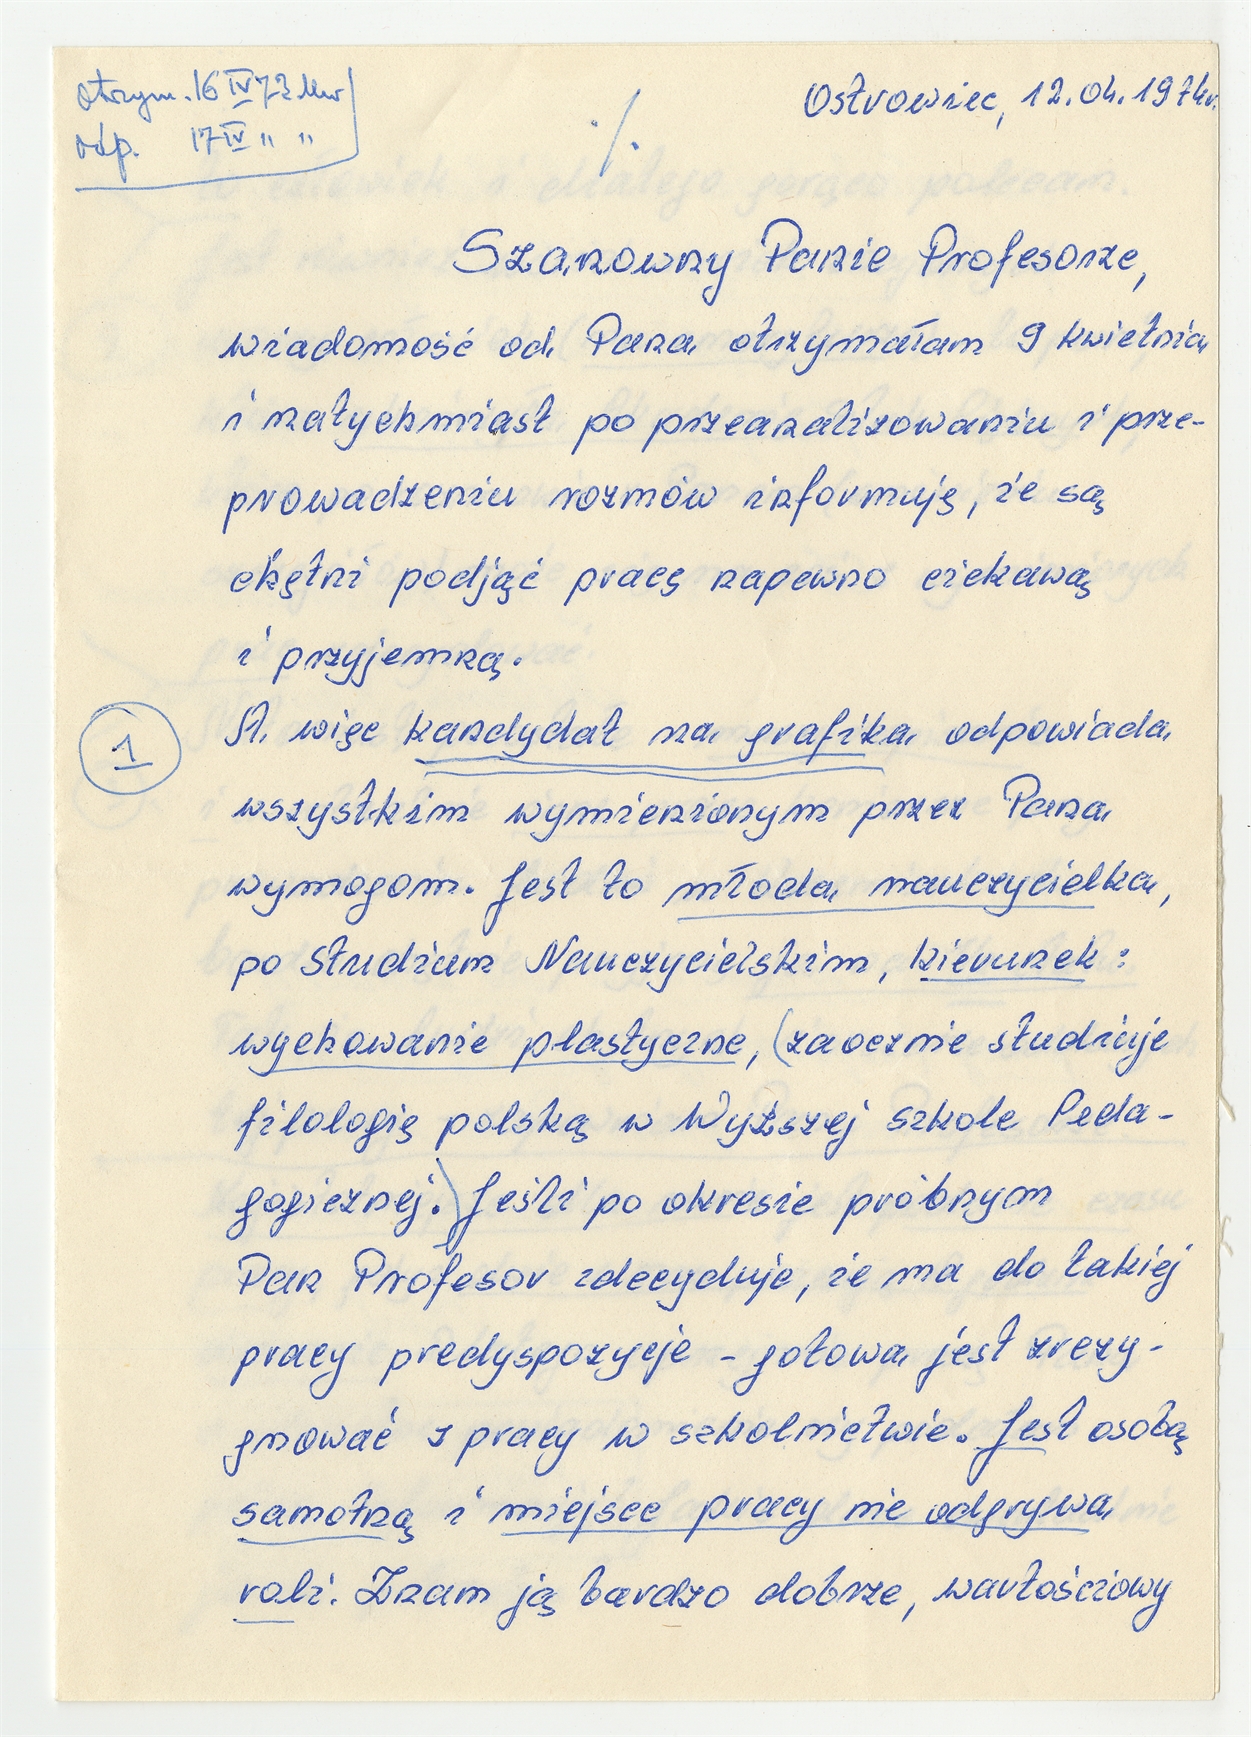 otrzym. 16 IV 72
odp. 17 IV " "
./.
Ostrowiec, 12.04.1974r.
Szanowny Panie Profesorze,
wiadomość od Pana otrzymałam 9 kwietnia
i natychmiast po przeanalizowaniu i prze-
prowadzeniu rozmów informuję, że są
chętni podjąć pracę napewno ciekawą
i przyjemną.
1
A więc kandydat na grafika odpowiada
wszystkim wymienionym przez Pana
wymogom. Jest to młoda nauczycielka,
po Studium Nauczycielskim, kierunek:
wychowanie plastyczne, (zaocznie studiuje
filologię polską w Wyższej Szkole Peda-
gogicznej.) Jeśli po okresie próbnym
Pan Profesor zdecyduje, że ma do takiej
pracy predyspozycje - gotowa jest zrezy-
gnować z pracy w szkolnictwie. Jest osobą
samotną i miejsce pracy nie odgrywa
roli. Znam ją bardzo dobrze, wartościowy